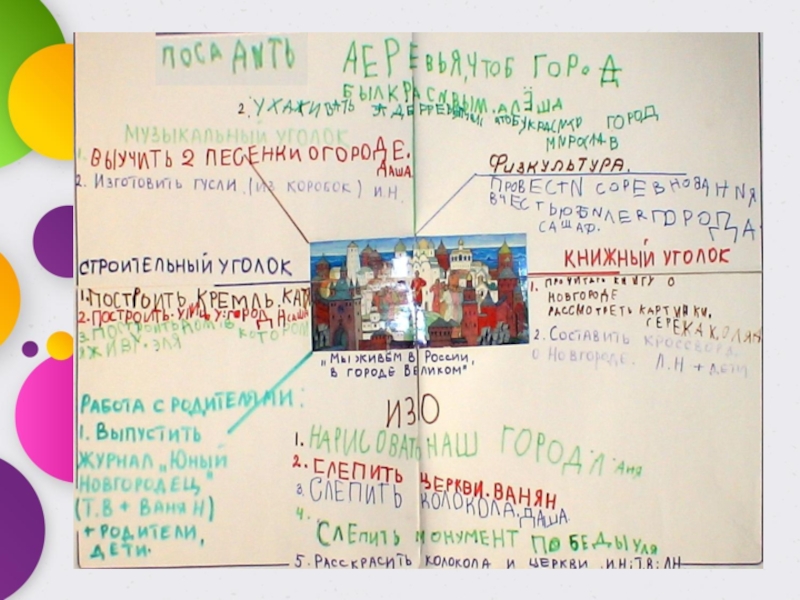 ПОСАДИТЬ ДЕРЕВЬЯ, ЧТОБ ГОРОД
БЫЛ КРАСИВЫМ. АЛЁША
2. УХАЖИВАТЬ ГОРОД
МИРОСЛАВ
МУЗЫКАЛЬНЫЙ УГОЛОК
1. ВЫУЧИТЬ 2 ПЕСЕНКИ О ГОРОДЕ.
ДАША.
2. ИЗГОТОВИТЬ ГУСЛИ. (ИЗ КОРОБОК) И.Н.
ФИЗКУЛЬТУРА.
ПРОВЕСТИ СОРЕВНОВАНИЯ
В ЧЕСТЬ ЮБИЛЕЯ ГОРОДА.
САША Ф.
СТРОИТЕЛЬНЫЙ УГОЛОК
1. ПОСТРОИТЬ КРЕМЛЬ. КАТЯ
2. ПОСТРОИТЬ УЛИЦУ. ГОРОДА САША
3. ПОСТРОИТЬ ДОМ В КОТОРОМ
Я ЖИВУ. ЭЛЯ
КНИЖНЫЙ УГОЛОК
1. ПРОЧИТАТЬ КНИГУ О
НОВГОРОДЕ
РАССМОТРЕТЬ КАРТИНКИ.
СЕРЁЖА К, ОЛЯ
2. СОСТАВИТЬ КРОССВОРД
О НОВГОРОДЕ. Л.Н + ДЕТИ
„МЫ ЖИВЁМ В РОССИИ,
В ГОРОДЕ ВЕЛИКОМ"
РАБОТА С РОДИТЕЛЯМИ:
1. ВЫПУСТИТЬ
ЖУРНАЛ „ЮНЫЙ
НОВГОРОДЕЦ"
(Т.В + ВАНЯ Н)
+ РОДИТЕЛИ,
ДЕТИ.
ИЗО
1. НАРИСОВАТЬ НАШ ГОРОД. Аня
2. СЛЕПИТЬ ЦЕРКВИ. ВАНЯ Н
3. СЛЕПИТЬ КОЛОКОЛА. ДАША
4. СЛЕПИТЬ МОНУМЕНТ ПОБЕДЫ УЛЯ
5. РАСКРАСИТЬ КОЛОКОЛА И ЦЕРКВИ. И.Н; Т.В; Л.Н